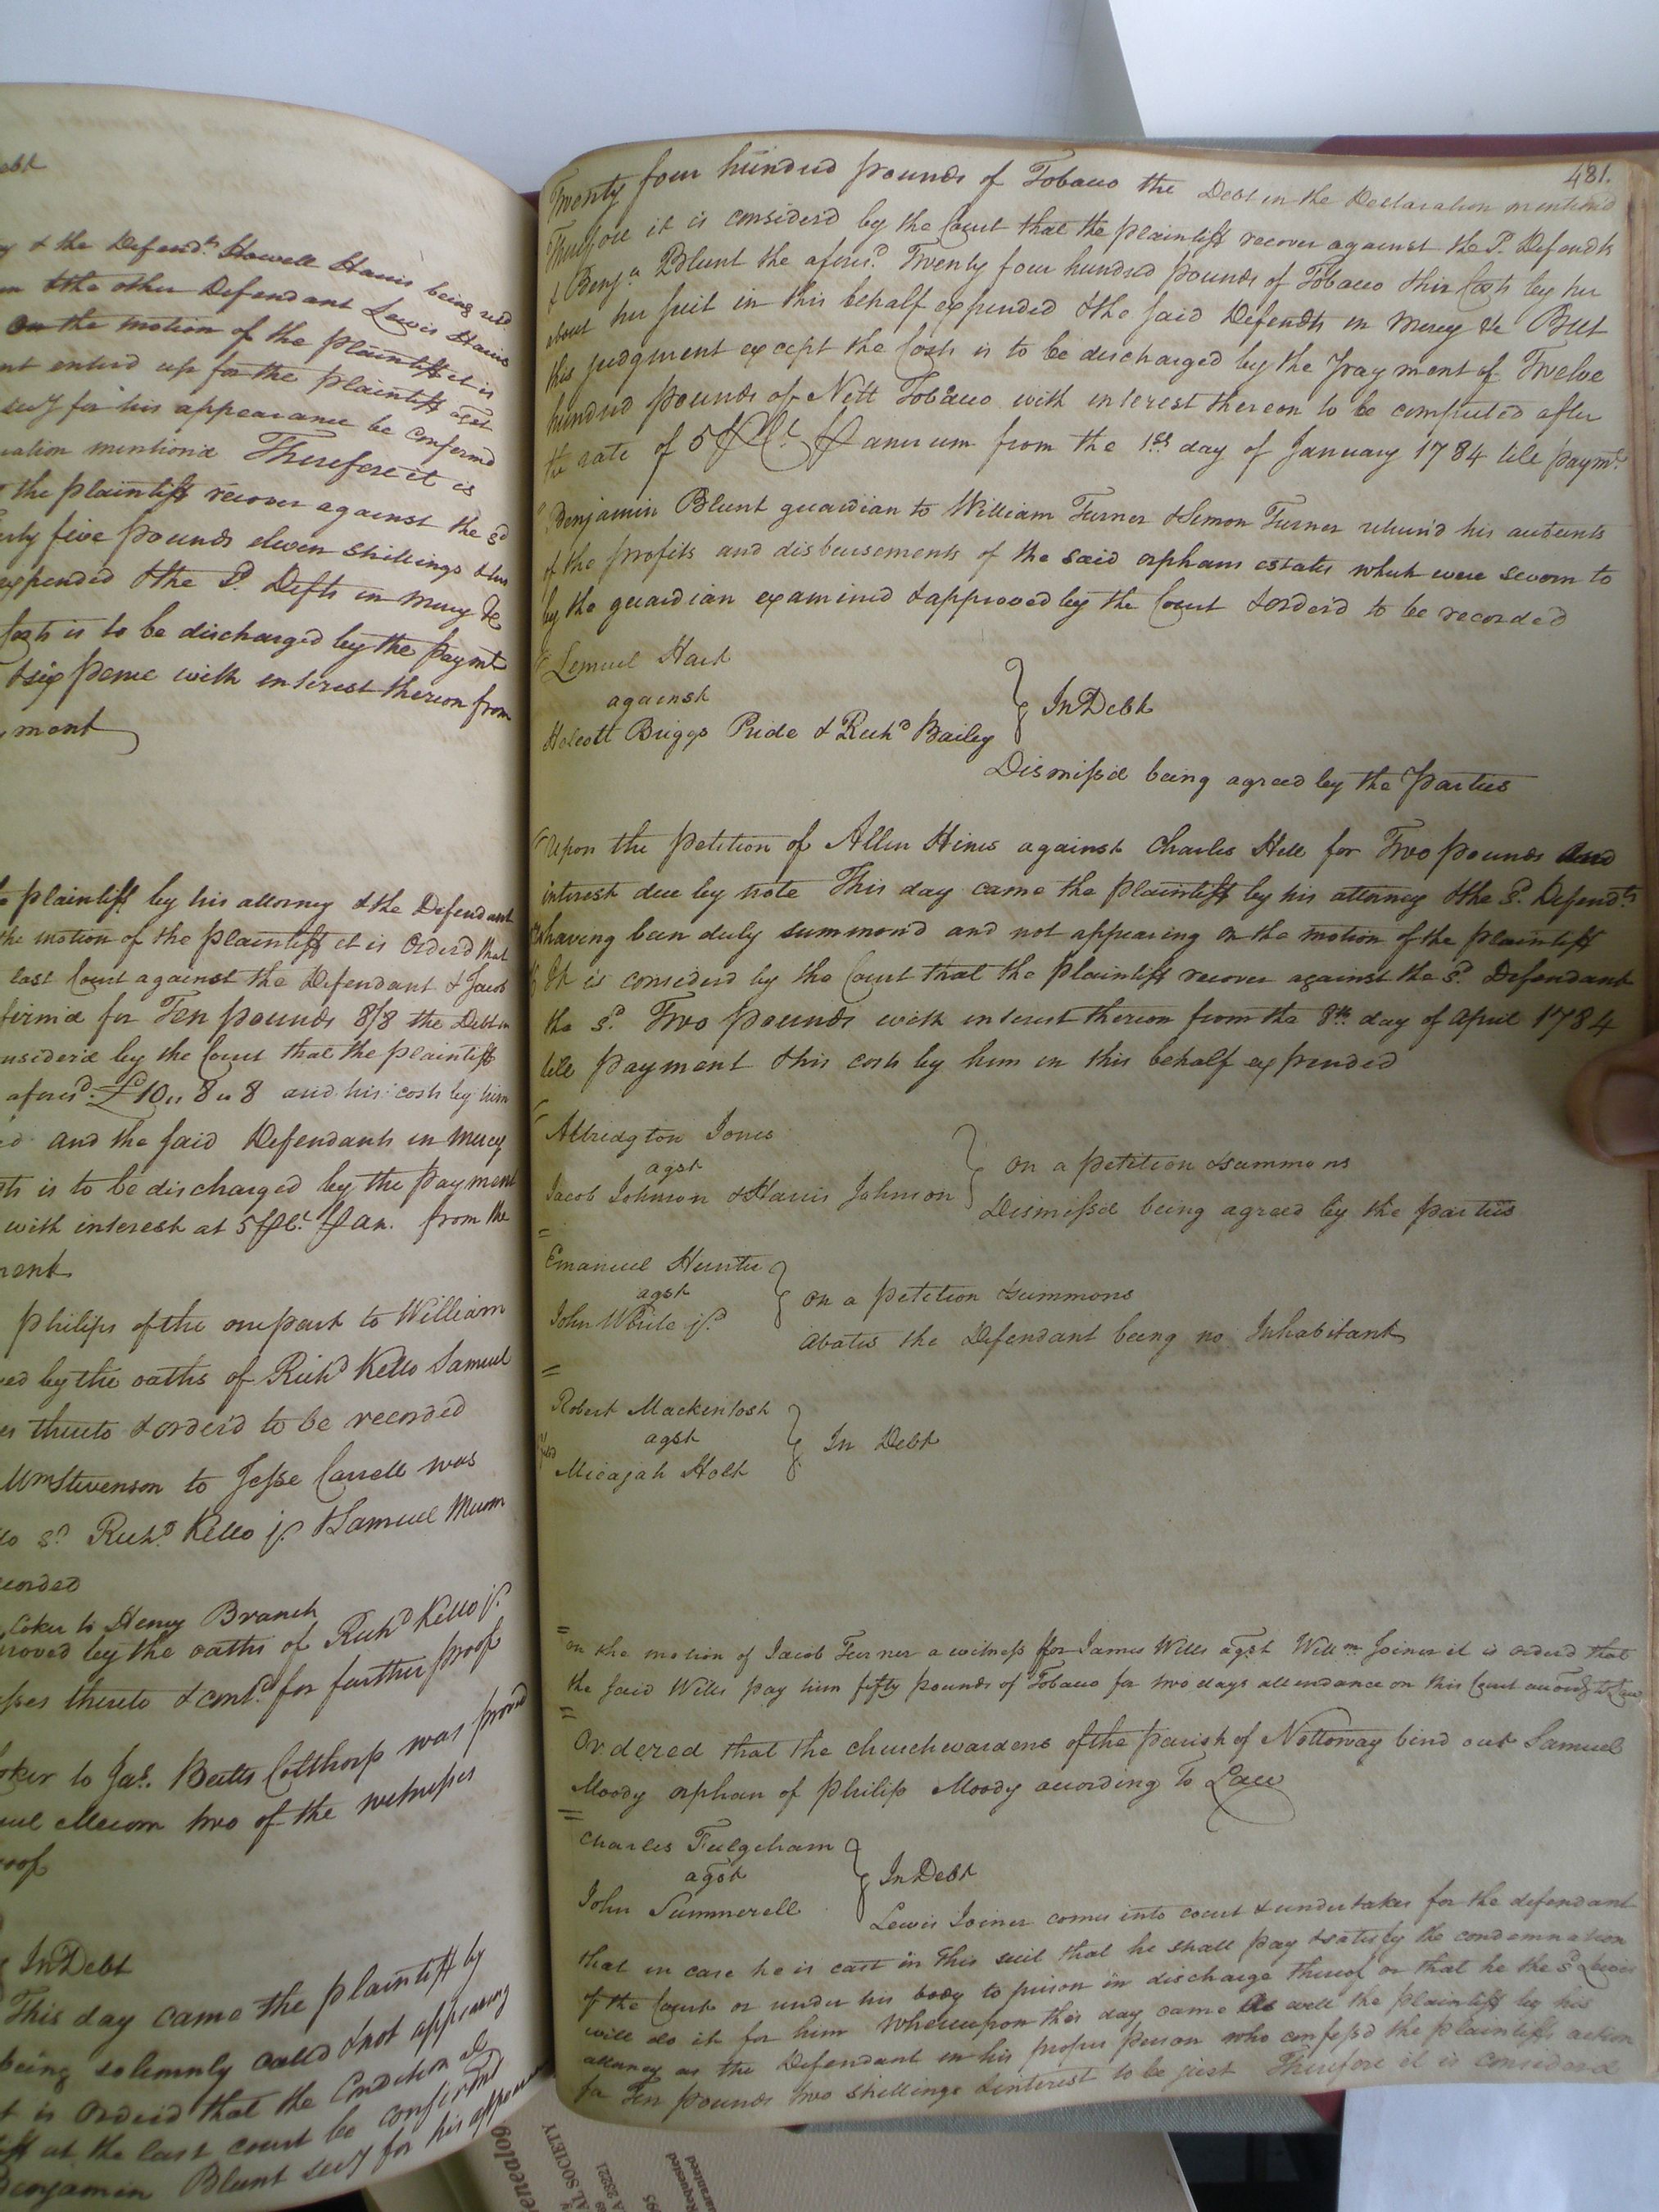 ebt
y & the Defendt. Howell Harris being
the other Defendant Lewis Harris
On the motion of the plaintiff it is
nt enterd up for the plaintiff agst
secy for his appearance be confirmd
ration mention'd Therefore it is
the plaintiff recover against the sd
five pounds eleven shillings & his
expended & the sd. Defts in mercy &c
Costs is to be discharged by the paymt
& six pence with interest thereon from
ment
plaintiff by his attorney & the Defendant
the motion of the plaintiff it is Orderd that
last Court against the Defendant & Jacob
firm'd for Ten pounds 8/8 the Debt in
nsider'd by the Court that the plaintiff
aforesd. £10 „ 8 „ 8 and his costs by him
d and the said Defendants in mercy
ts is to be discharged by the payment
with interest at 5 P Ct. P an. from the
ment
Philips of the one part to William
ved by the oaths of Richd Kello Samuel
es thereto & order'd to be recorded
Wm Stevenson to Jesse Carrell was
lo Sr. Richd. Kello jr. & Samuel
corded
Coker to Henry Branch
roved by the oaths of Richd Kello jr.
sses thereto & contd. for further proof
oker to Jas. Butts Colthorp was proved
uel two of the witnesses
roof
In Debt
This day came the plaintiff by
being solemnly called & not appearing
it is Orderd that the Condition al
iff at the last court be confirmd
Benjamin Blunt secy for his appearance
481.
Twenty four hundred pounds of Tobacco the Debt in the Declaration mention'd
Therefore it is consider'd by the Court that the plaintiff recover against the sd. Defendts
& Benja. Blunt the aforesd. Twenty four hundred pounds of Tobacco & her Costs by her
about her suit in this behalf expended & the said Defendts in mercy &c But
this judgment except the Costs is to be discharged by the payment of Twelve
hundred pounds of Nett Tobacco with interest thereon to be computed after
the rate of 5 P Ct. P annum from the 1st. day of January 1784 till paymt.
Benjamin Blunt guardian to William Turner & Simon Turner return'd his accounts
of the profits and disbursements of the said orphans estates which were sworn to
by the guardian examined & approved by the Court & order'd to be recorded
Lemuel Hart
against
Holcott Briggs Pride & Richd Bailey
In Debt
Dismiss'd being agreed by the Parties
Upon the petition of Allen Hines against Charles Hill for Two pounds and
interest due by note This day came the plaintiff by his attorney & the sd. Defendt.
having been duly summond and not appearing On the motion of the plaintiff
It is considerd by the Court that the plaintiff recover against the sd. Defendant
the sd. Two pounds with interest thereon from the 8th day of April 1784
till payment & his costs by him in this behalf expended
Albridgton Jones
agst
Jacob Johnson & Harris Johnson
on a petition & summons
Dismiss'd being agreed by the parties
Emanuel Hunter
agst
John White jr.
on a petition & summons
abates the Defendant being no Inhabitant
Robert Mackintosh
agst
Micajah Holt
In Debt
on the motion of Jacob Turner a witness for James Wills agst Willm Joiner it is orderd that
the said Wills pay him fifty pounds of Tobacco for two days attendance on this Court accordg to Law
Ordered that the churchwardens of the parish of Nottoway bind out Samuel
Moody orphan of Philip Moody according to Law
Charles Fulgeham
agst
John Summerell
In Debt
Lewis Joiner comes into court & undertakes for the defendant
that in case he is cast in this suit that he shall pay & satisfy the condemnation
of the Court or render his body to prison in discharge thereof or that he the sd Lewis
will do it for him Whereupon this day came as well the plaintiff by his
attorney as the Defendant in his proper person who confess'd the plaintiffs action
for Ten pounds two shillings & interest to be just Therefore it is considered
enealog
AL SOCIETY
A 23221
Requested